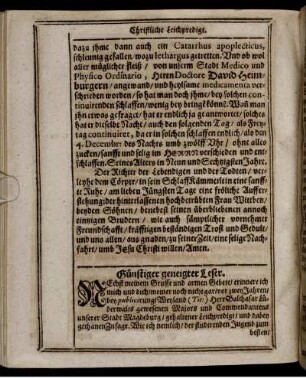 Christliche Leichpredigt.
dazu ihme dann auch ein Catarrhus apoplecticus,
schleunig gefallen, wozu lethargus getretten. Und ob wol
aller müglicher fleiß / von unserm Stadt Medico und
Physico Ordinario, Herren Doctore David Heim-
burgern / angewand / und heylsame medicamenta ver-
schrieben worden / so hat man doch ihme / bey solchen con-
tinuirenden schlaffen / wenig bey bringē könnē. Wañ man
ihn etwas gefraget / hat er endlich ja geantwortet / solches
hat er dieselbe Nacht / auch den folgenden Tag / als Frey-
tag continuiret, da er in solchen schlaffen endlich / als den
4. December des Nachts umb zwölff Uhr / ohne alles
zucken / sanfft und selig im HERRN verschieden und ent-
schlaffen. Seines Alters im Neun und Sechtzigsten Jahre.
Der Richter der Lebendigen und der Todten / ver-
leyhe dem Cörper / in sein Schlaff-Kämmerlein eine sanff-
te Ruhe / am lieben Jüngsten Tage eine fröliche Auffer-
stehung: der hinterlassenen hochbetrübten Frau Witben /
beyden Söhnen / die
einigen Brudern / wie auch sämptlicher vornehmer
Freundschafft / kräfftigen beständigen Trost und Gedult /
und uns allen / aus gnaden / zu seiner Zeit / eine selige Nach-
fahrt / umb JEsu Christi willen / Amen.
Günstiger geneigter Leser.
NEchst meinem Grusse und armen Gebete / erinnere ich
mich und auch
Weyland (Tit:) Herr Balthasar
derwalds gewesenen Majors und Commendantens
unserer Stadt Magdeburg / gehaltener Leichpredigt / und haben
gethanen Zusage: Wie ich nemlich / der studirenden Jugend zum
besten /